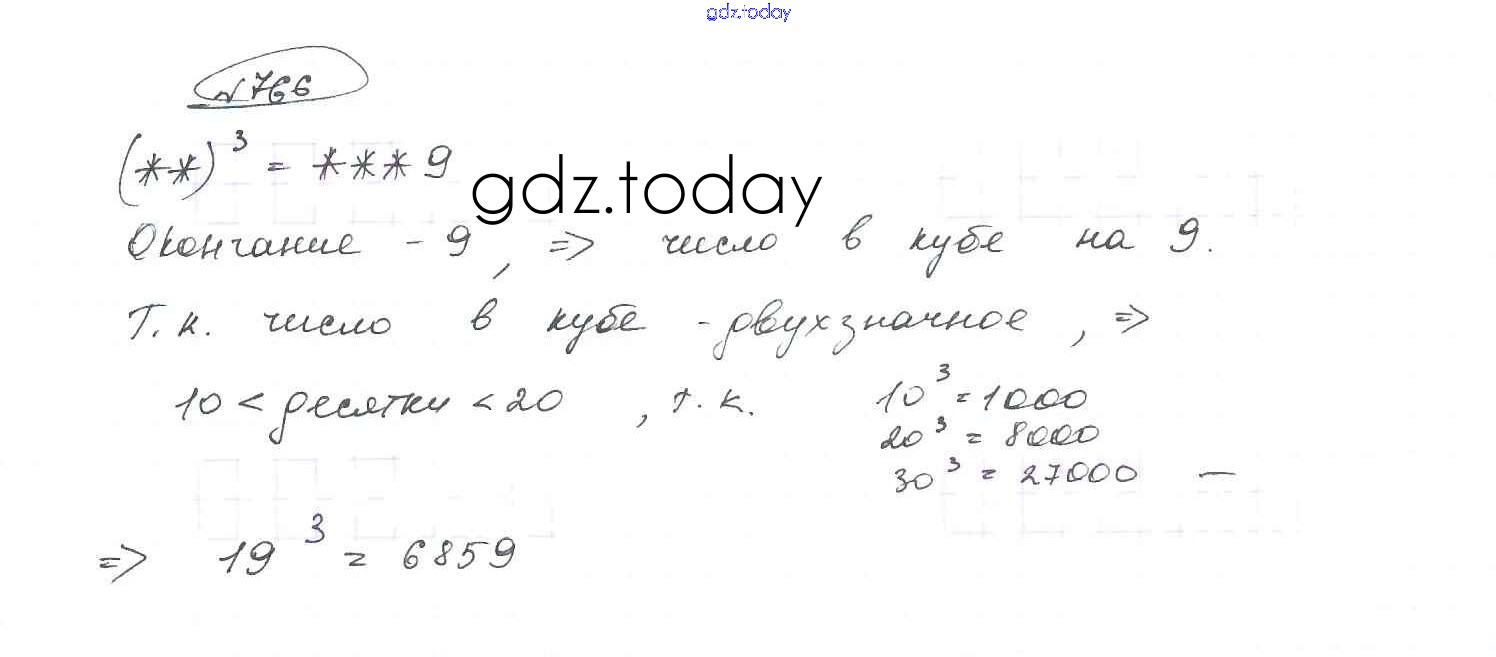 gdz.today
№766
(**)³ = ***9
gdz.today
Окончание - 9, => число в кубе на 9.
Т.к. число в кубе - двухзначное, =>
10 < десятки < 20, т.к. 10³ = 1000
20³ = 8000
30³ = 27000 —
=> 19³ = 6859